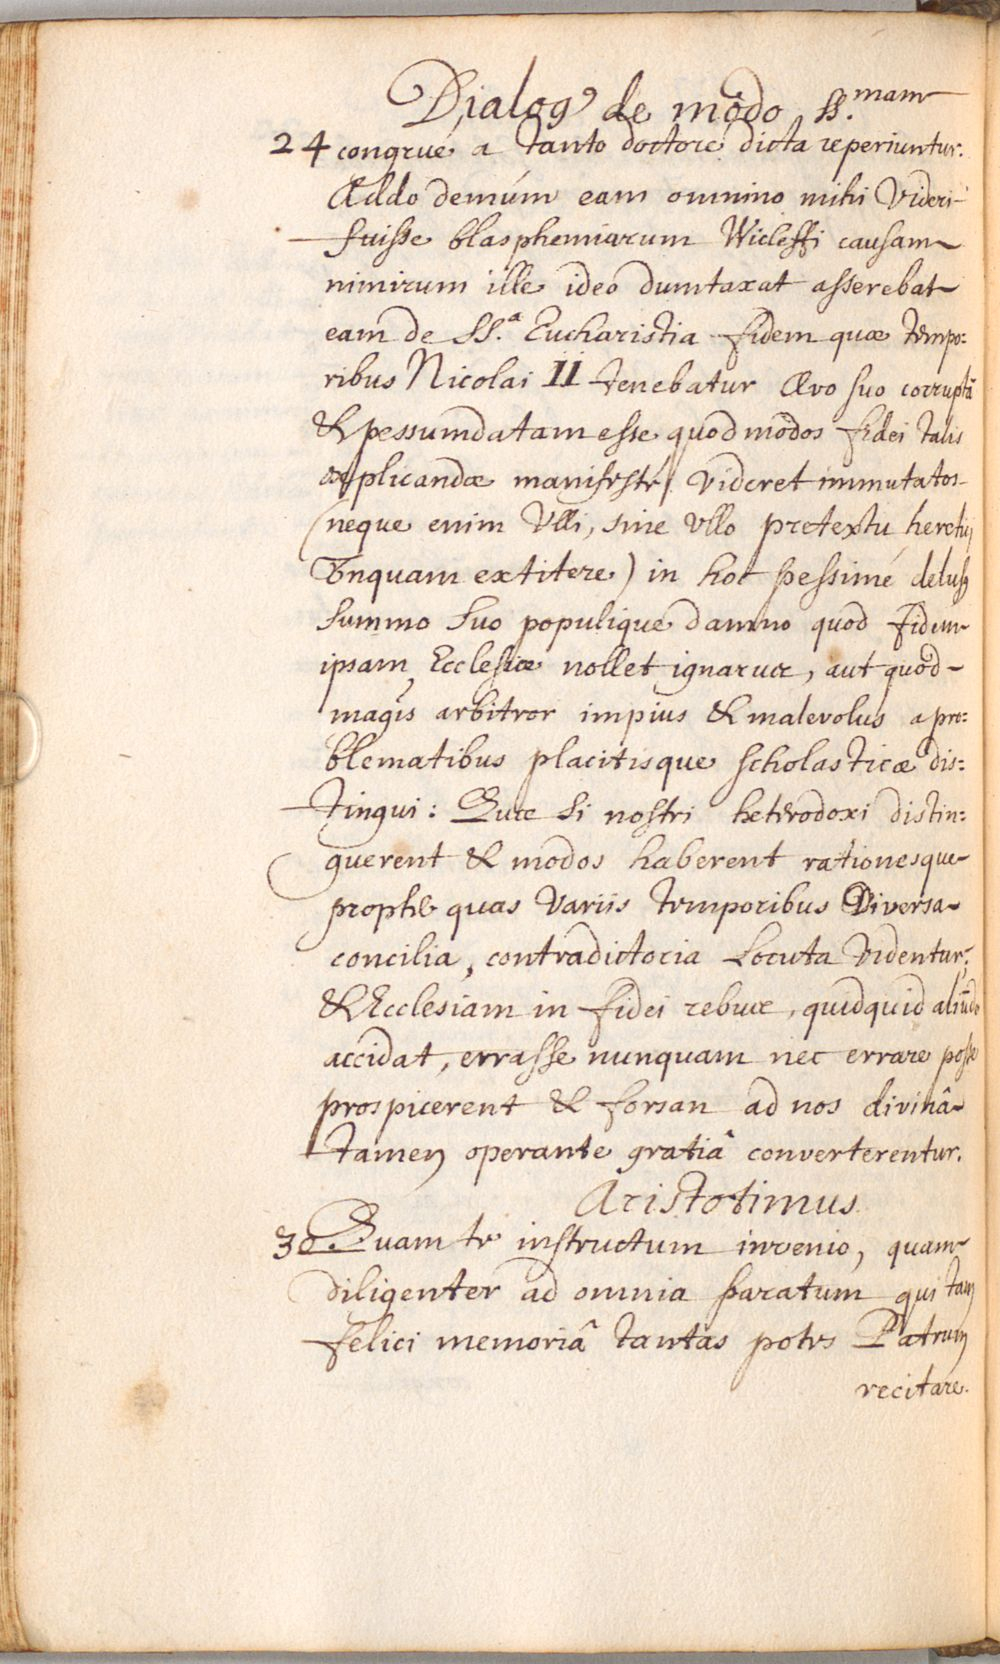 Dialog9 de modo SS.mam
24 congrué a tanto doctore dicta reperiuntur.
Addo demúm eam omnino mihi Videri
fuisse blasphemiarum Wicleffi causam
nimirum ille ideo dumtaxat asserebat
eam de SS.a Eucharistia fidem quæ tempo:
ribus Nicolai II tenebatur Ævo suo corruptã
& pessumdatam esse quod modos fidei talis
explicandæ manifesté Videret immutatos
(neque enim Vlli, sine Vllo pretextu heretici
Vnquam extitere) in hoc pessimé delus9
summo suo populique damno quod fidem
ipsam Ecclesiæ nollet ignarus, aut quod
magis arbitror impius & malevolus a pro:
blematibus placitisque scholasticæ dis:
tingui: Quæ si nostri heterodoxi distin:
guerent & modos haberent rationesque
propter quas Variis temporibus Diversa
concilia, contradictoria Locuta Videntur;
& Ecclesiam in fidei rebus, quidquid aliũde
accidat, errasse nunquam nec errare posse
prospicerent & forsan ad nos divinâ
tamen operante gratiâ converterentur.
Aristotimus
30. Quam te instructum invenio, quam
diligenter ad omnia paratum qui tam
felici memoriâ tantas potes Patrum
recitare.